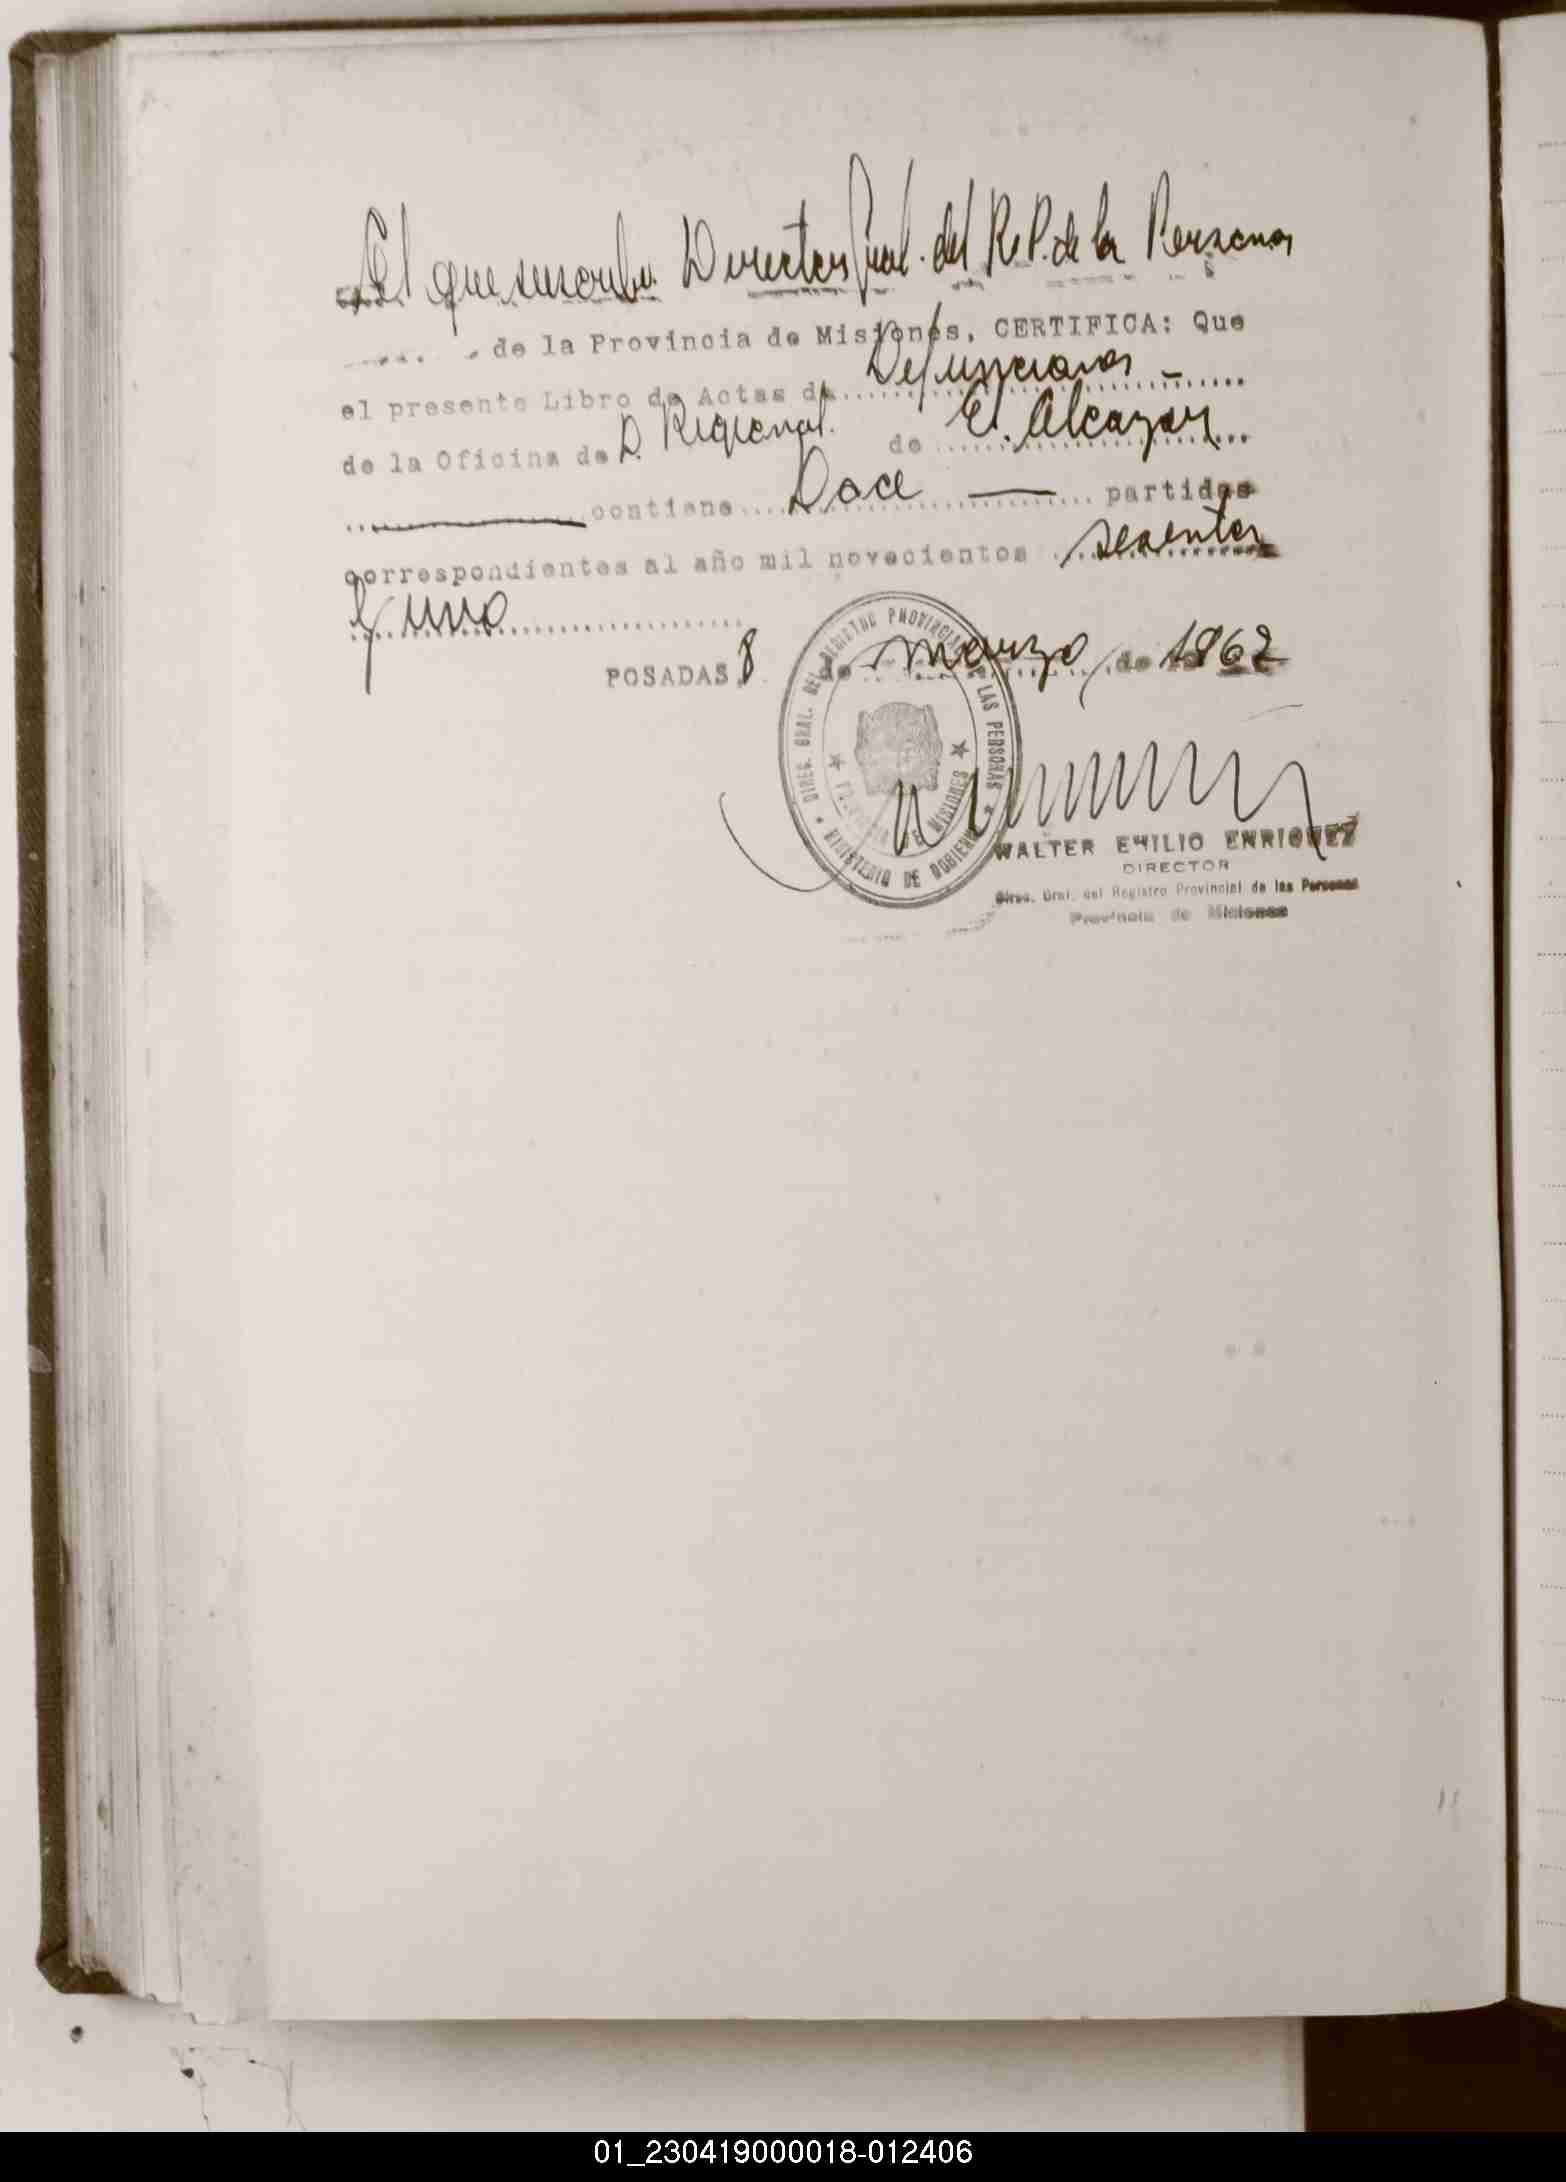 El que suscribe Director Gral. del R.P. de la Personas
de la Provincia de Misiones, CERTIFICA: Que
el presente Libro de Actas de Defunciones
de la Oficina de D. Regional. de El Alcazar
contiene Doce partidas
correspondientes al año mil novecientos sesenta
y uno
POSADAS, 8 de marzo de 1962
DIREC. GRAL. DEL REGISTRO PROVINCIAL DE LAS PERSONAS
MINISTERIO DE GOBIERNO
PROVINCIA DE MISIONES
WALTER EMILIO ENRIQUEZ
DIRECTOR
Direc. Gral. del Registro Provincial de las Personas
Provincia de Misiones
01_230419000018-012406